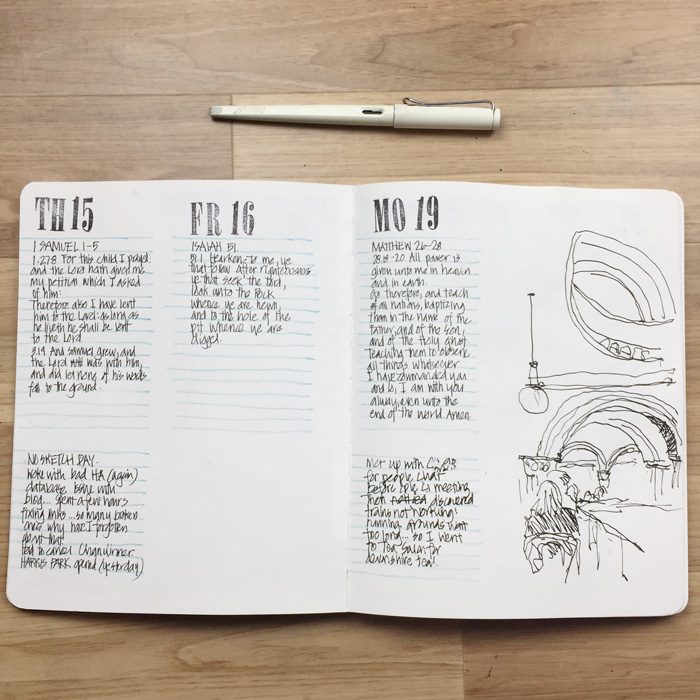 TH 15
1 SAMUEL 1-5
1.27,8 For this child I prayed
and the Lord hath given me
my petition which I asked
of him:
Therefore also I have lent
him to the Lord: as long as
he liveth he shall be lent
to the Lord
3.19 And Samuel grew, and
the Lord was with him,
and did let none of his words
fall to the ground.
NO SKETCH DAY.
Woke with bad HA (again)
database issue with
blog... spent a few hours
fixing links... so many broken
ones why had I forgotten
about that
had to cancel dinner.
HARRIS PARK opened (yesterday)
FR 16
ISAIAH 51
51.1 Hearken to me, ye
that follow after righteousness
ye that seek the Lord,
look unto the Rock
whence ye are hewn,
and to the hole of the
pit whence ye are
digged.
MO 19
MATTHEW 26-28
28.18-20 All power is
given unto me in heaven
and in earth.
Go therefore, and teach
all nations, baptizing
them in the name of the
Father, and of the Son,
and of the Holy Ghost.
Teaching them to observe
all things whatsoever
I have commanded you
and lo, I am with you
alway, even unto the
end of the world. Amen.
Met up with
for people chat
before meeting,
then discovered
trains not working!
running grounds went
too long... so I went
to Tea Salon for
devonshire tea!